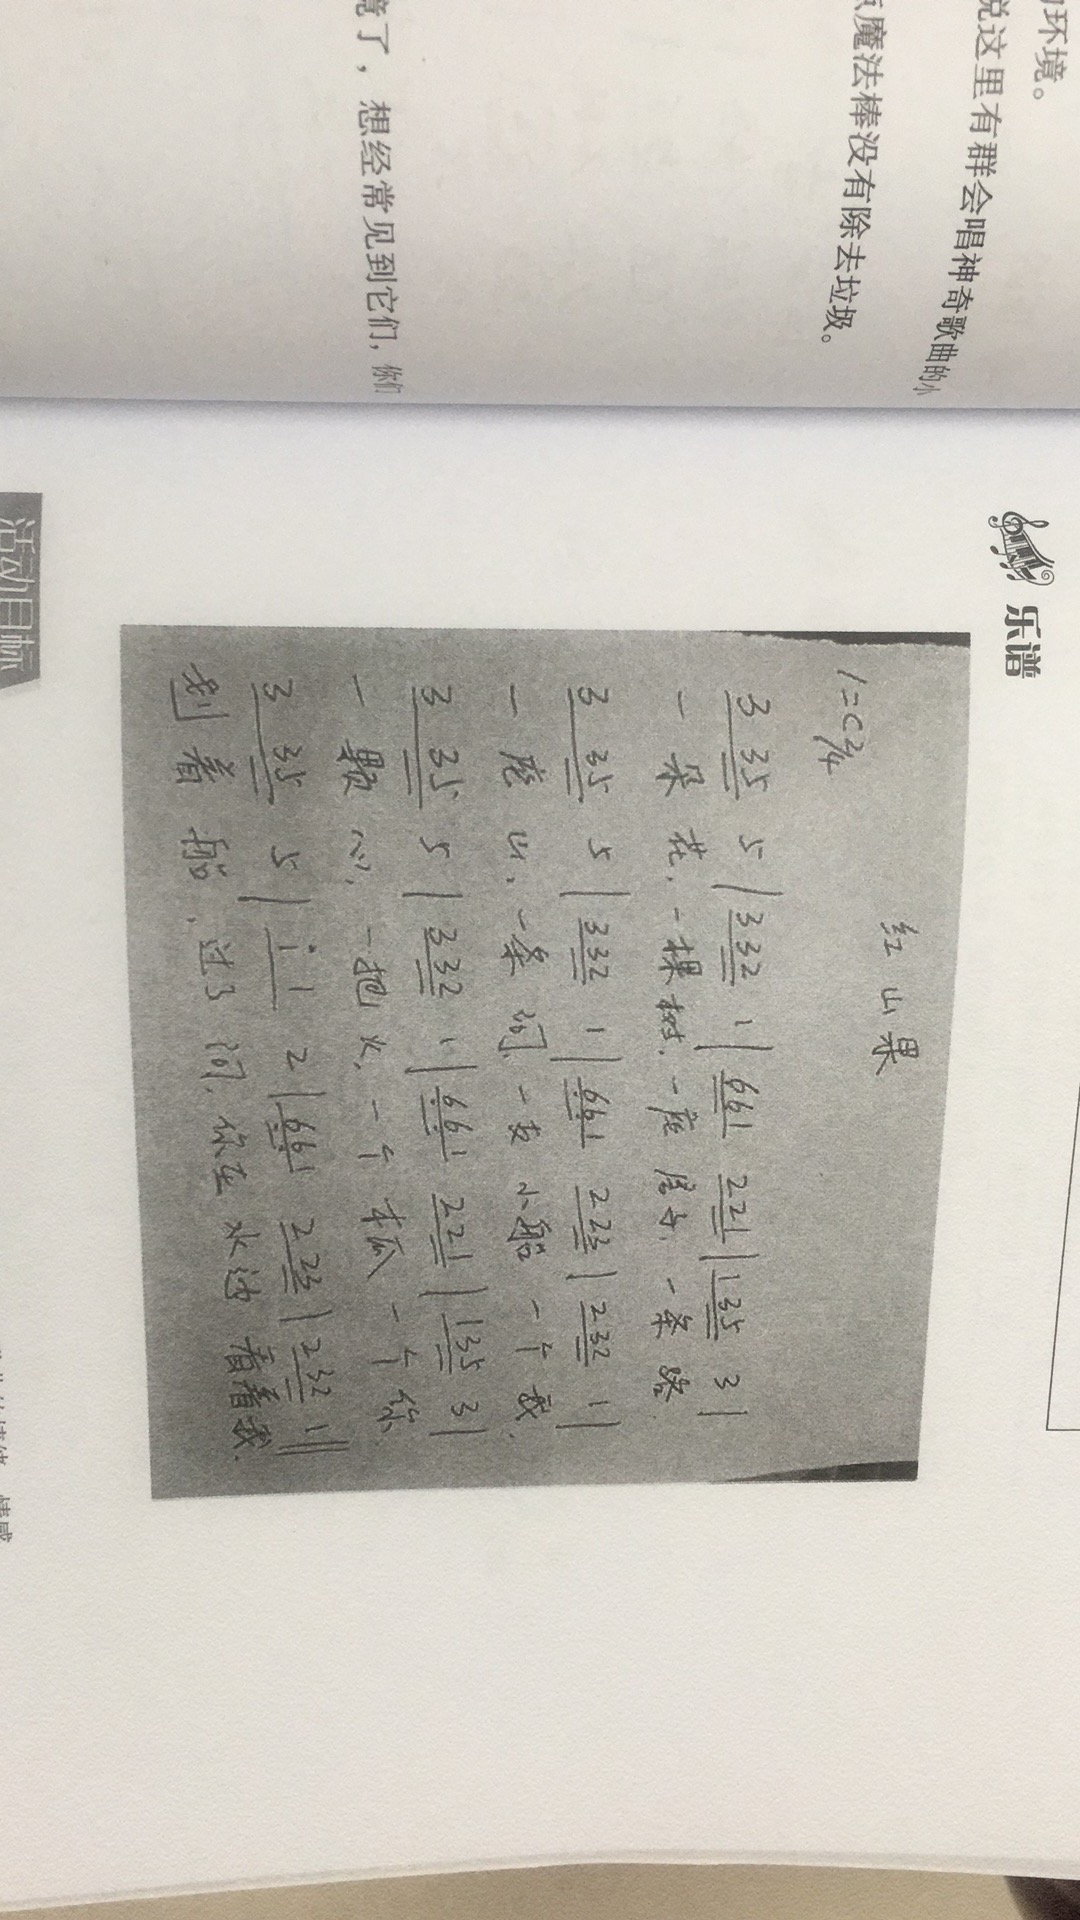 的环境。
说这里有群会唱神奇歌曲的小
点魔法棒没有除去垃圾。
竟了，想经常见到它们，你们
乐谱
红山果
1=C 2/4
3 35 5 | 332 1 | 661 221 | 135 3 |
一朵花，一棵树，一座房子，一条路
3 35 5 | 332 1 | 661 223 | 232 1 |
一座山，一条河，一支小船一个我，
3 35 5 | 332 1 | 661 221 | 135 3 |
一颗心，一把火，一个一个你
3 35 5 | i 1 2 | 661 223 | 232 1 ‖
划着船，过了河，你在水边看着我.
活动目标
情感